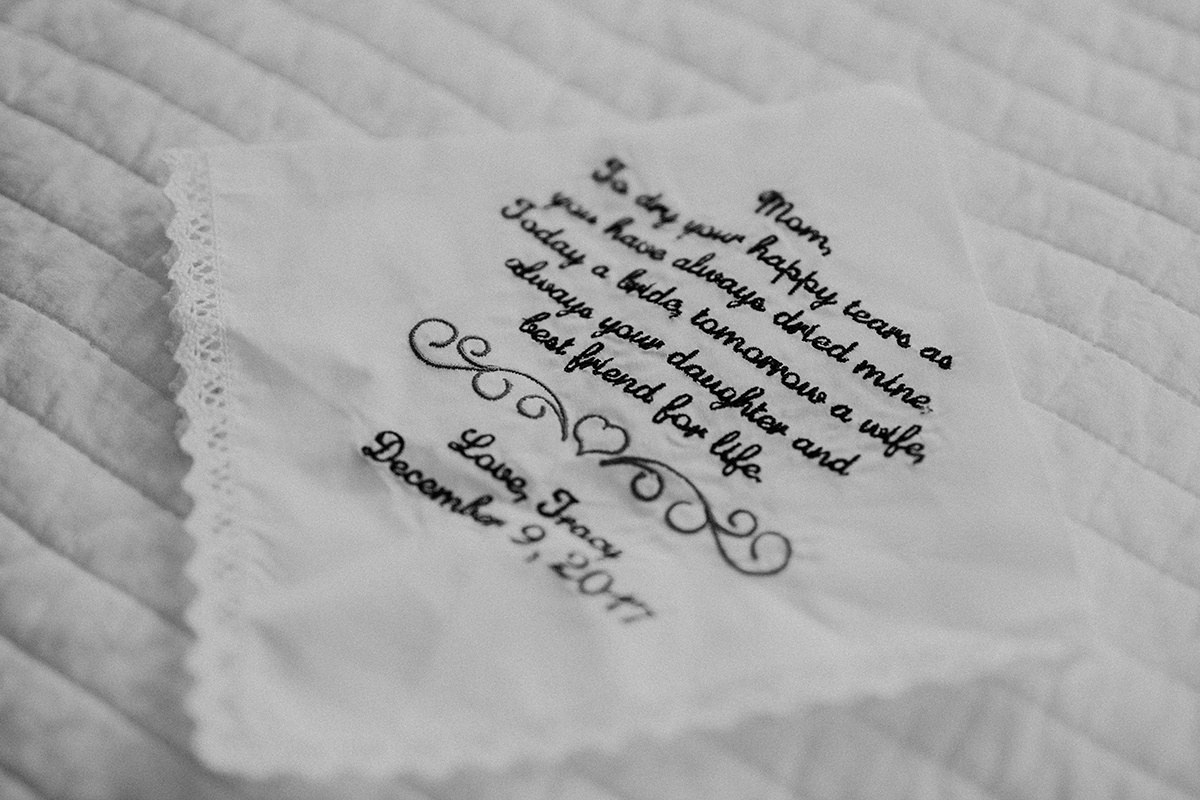 Mom,
To dry your happy tears as
you have always dried mine.
Today a bride, tomorrow a wife,
always your daughter and
best friend for life.
Love, Tracy
December 9, 2017